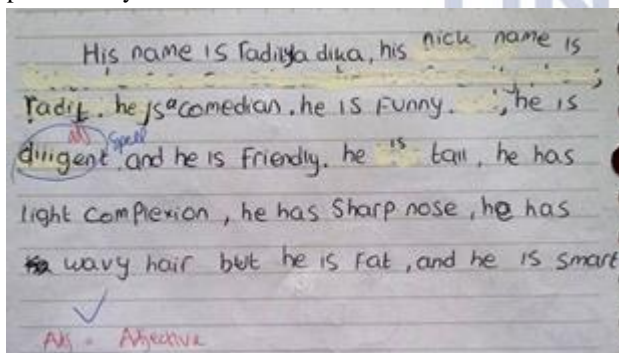 His name is Raditya dika, his nick name is
radit. he is a comedian. he is Funny. , he is
adj spell
diligent and he is Friendly. he is tall, he has
light complexion, he has Sharp nose, he has
wavy hair but he is Fat, and he is smart
Adj = Adjective